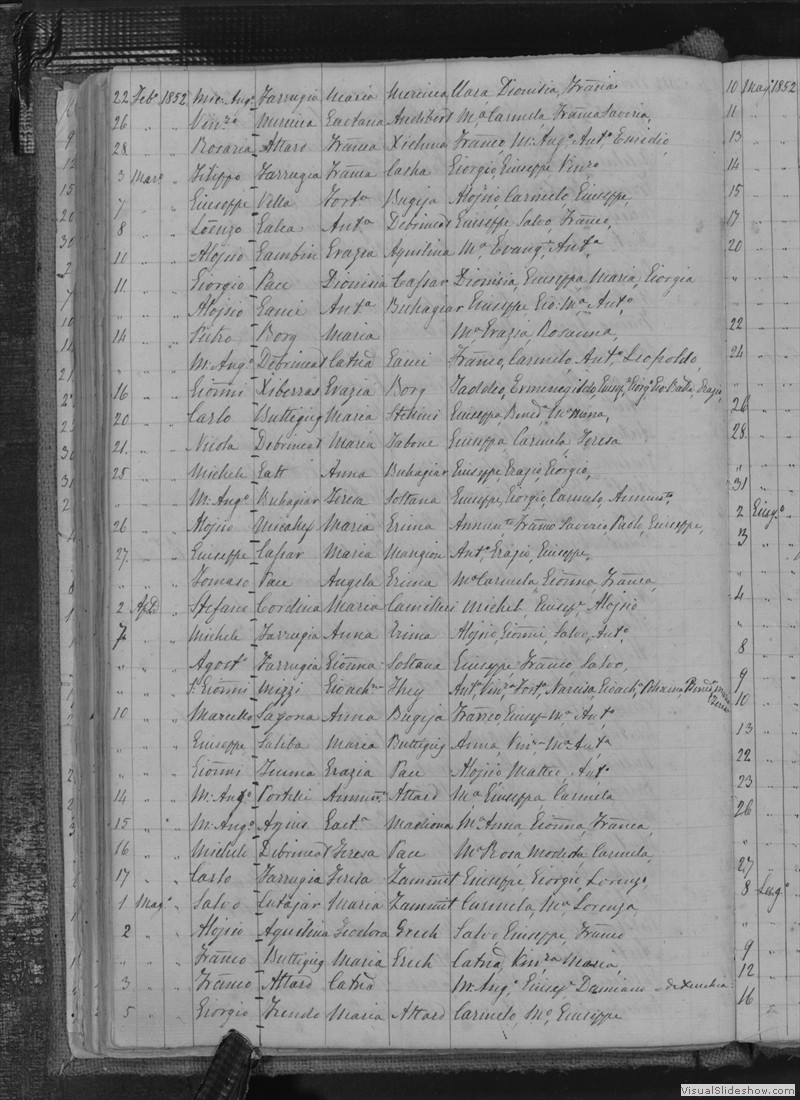 22 Feb° 1852 Mic: Ang° Farrugia Maria Mercieca Clara Dionisia, Franca
26 " " Vinz° Mercieca Gaetana Archibert Ma Carmela Franca Saveria,
28 " " Rosario Attard Franca Xichma Franco, M: Ang° Ant° Emidio,
3 Marzo " Filippo Farrugia Franca Casha Giorgio, Giuseppe Vinz°
7 " " Giuseppe Vella Forta Bugeja Alojsio, Carmelo, Giuseppe,
8 " " Lorenzo Galea Anta Debrincat Giuseppe Salvo, Franco,
11 " " Alojsio Gambin Grazia Aquilina Ma Evang: Anta
11 " " Giorgio Pace Dionisia Cassar Dionisia, Giuseppa Maria, Giorgia
" " Alojsio Gauci Anta Buhagiar Giuseppe Gio: Ma Ant°
14 " " Pietro Borg Maria Ma Grazia, Rosanna,
" " M: Ang° Debrincat Catna Gauci Franco, Carmelo, Ant° Leopoldo,
16 " " Gionni Xiberras Grazia Borg Taddeo, Ermenegildo, Giusepe Giorg° Gio: Batta, Grazia,
20 " " Carlo Buttigieg Maria Stellini Giuseppa, Bened.
21 " " Nicola Debrincat Maria Sabone Giuseppa Carmela, Teresa
25 " " Michele Gatt Anna Buhagiar Giuseppe, Grazio, Giorgio,
" " M: Ang° Buhagiar Teresa Soltana Giuseppe, Giorgio, Carmelo,
26 " " Alojsio Micallef Maria Grima Franco Saverio, Paolo, Giuseppe,
27 " " Giuseppe Cassar Maria Mangion Ant° Grazio, Giuseppe,
" " Tomaso Pace Angela Grima Ma Carmela, Gionna, Franca,
2 Aple " Stefano Cordina Maria Camilleri Michel, Giusepe Alojsio
7 " " Michele Farrugia Anna Grima Alojsio, Gionni Salvo, Ant°
" " Agost° Farrugia Gionna Soltana Giuseppe Franco Salvo,
" " Gionni Mizzi Gioachna They Ant° Vinza Narcisa, Gioach:
10 " " Marcello Sagona Anna Bugeja Franco, Giuse- Ma Anta
" " Giuseppe Saliba Maria Buttigieg Anna, Vinz- Ma Anta
" " Gionni Grazia Pace Alojsio Matteo, Ant°
14 " " M: Ang° Portelli Annun: Attard Ma Giuseppa Carmela
15 " " M: Ang° Apius Gaeta Machona Ma Anna, Gionna, Franca,
16 " " Michele Debrincat Teresa Pace Ma Rosa Modesta Carmela,
17 " " Carlo Farrugia Teresa Zammit Giuseppe Giorgio, Lorenzo
1 Mag° " Salvo Cutajar Maria Zammit Carmela, Ma Lorenza,
2 " " Alojsio Aquilina Teodora Grech Salvo, Giuseppe, Franco
" " Franco Buttigieg Maria Grech Catna, Vinza Maria,
3 " " Franco Attard Catna M: Ang° Giusepe Damiano
5 " " Giorgio Trendo Maria Attard Carmelo, Ma Giuseppe
10 Mag° 1852
11 "
13 "
14 "
15 "
17 "
20 "
" "
" "
22 "
24 "
" "
26 "
28 "
" "
31 "
2 Giug° "
3 "
" "
4 "
8 "
9 "
10 "
13 "
22 "
23 "
26 "
" "
27 "
8 Lug° "
9 "
12 "
16 "
VisualSlideshow.com